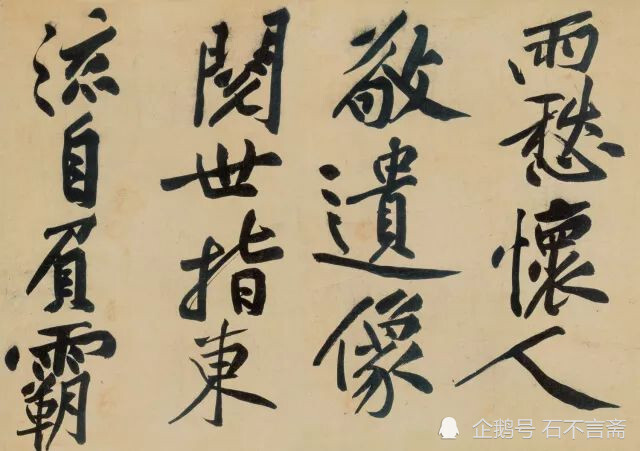 雨愁懷人
敬遺像
閱世指東
流自負霸
企鹅号 石不言斋